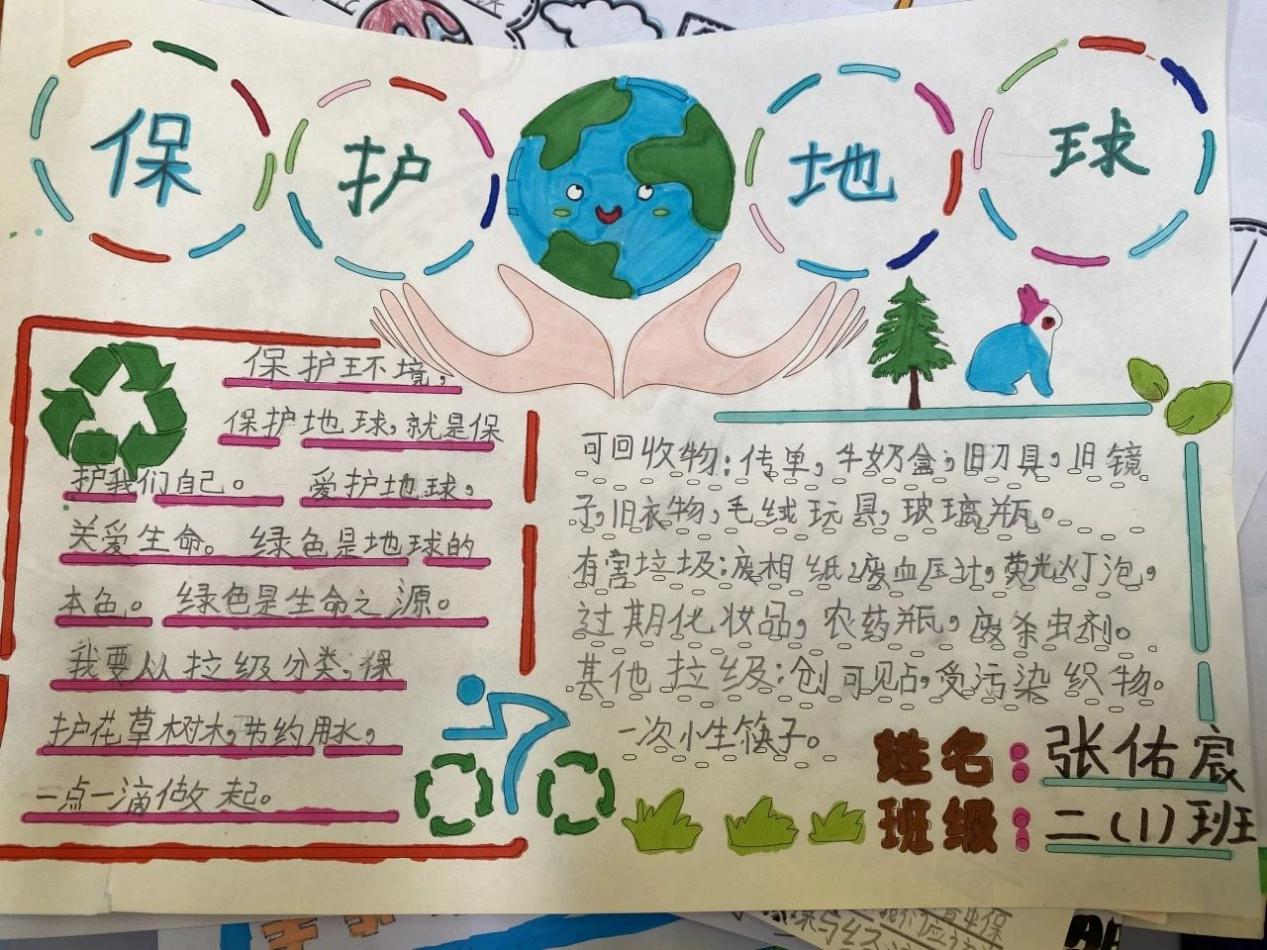 保护地球
保护环境,
保护地球,就是保
护我们自己。 爱护地球,
关爱生命。 绿色是地球的
本色。 绿色是生命之源。
我要从垃级分类,保
护花草树木,节约用水,
一点一滴做起。
可回收物:传单,牛奶盒,旧刀具,旧镜
子,旧衣物,毛绒玩具,玻璃瓶。
有害垃圾:废相纸,废血压计,荧光灯泡,
过期化妆品,农药瓶,废杀虫剂。
其他拉级:创可贴,受污染织物。
一次小生筷子。
姓名:张佑宸
班级:二(1)班